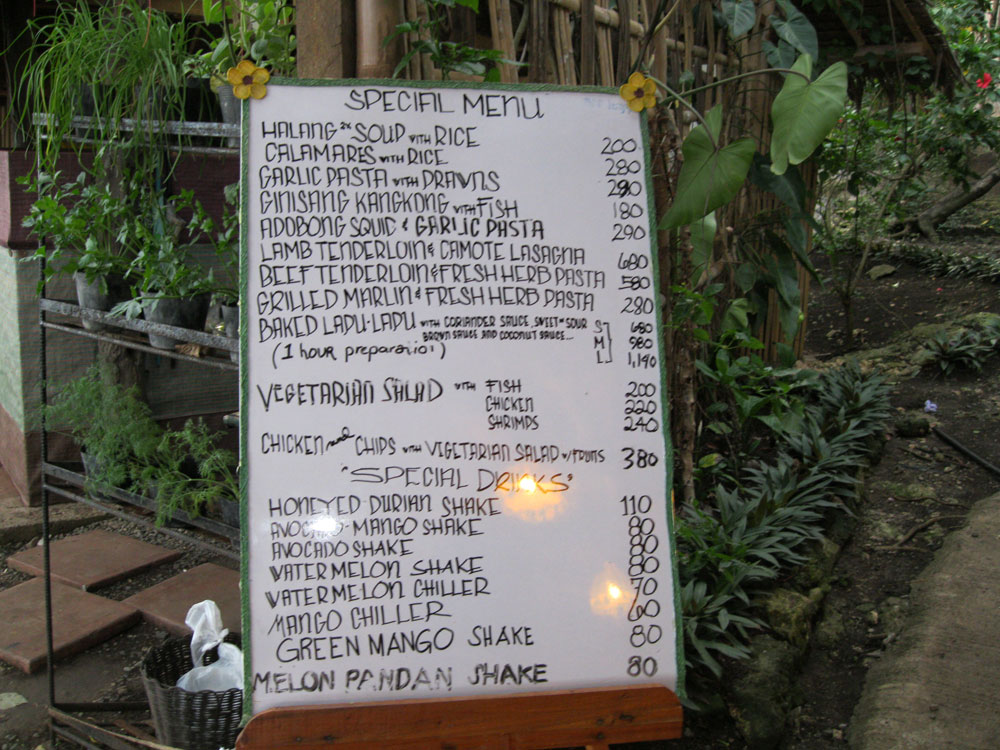 SPECIAL MENU
HALANG²ˣ SOUP WITH RICE 200
CALAMARES WITH RICE 280
GARLIC PASTA WITH PRAWNS 280
GINISANG KANGKONG WITH FISH 180
ADOBONG SQUID & GARLIC PASTA 290
LAMB TENDERLOIN & CAMOTE LASAGNA 680
BEEF TENDERLOIN & FRESH HERB PASTA 580
GRILLED MARLIN & FRESH HERB PASTA 280
BAKED LAPU-LAPU WITH CORIANDER SAUCE, SWEET n SOUR S 680
BROWN SAUCE AND COCONUT SAUCE... M 980
(1 hour preparation) L 1,190
VEGETARIAN SALAD WITH FISH 200
CHICKEN 220
SHRIMPS 240
CHICKEN and CHIPS WITH VEGETARIAN SALAD W/ FRUITS 380
"SPECIAL DRINKS"
HONEYED-DURIAN SHAKE 110
AVOCADO-MANGO SHAKE 80
AVOCADO SHAKE 80
WATERMELON SHAKE 80
WATERMELON CHILLER 70
MANGO CHILLER 60
GREEN MANGO SHAKE 80
MELON PANDAN SHAKE 80